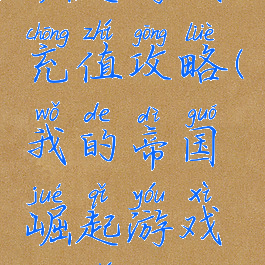 chōng zhí gōng lüè
充值攻略(
wǒ de dì guó
我的帝国
jué qǐ yóu xì
崛起游戏